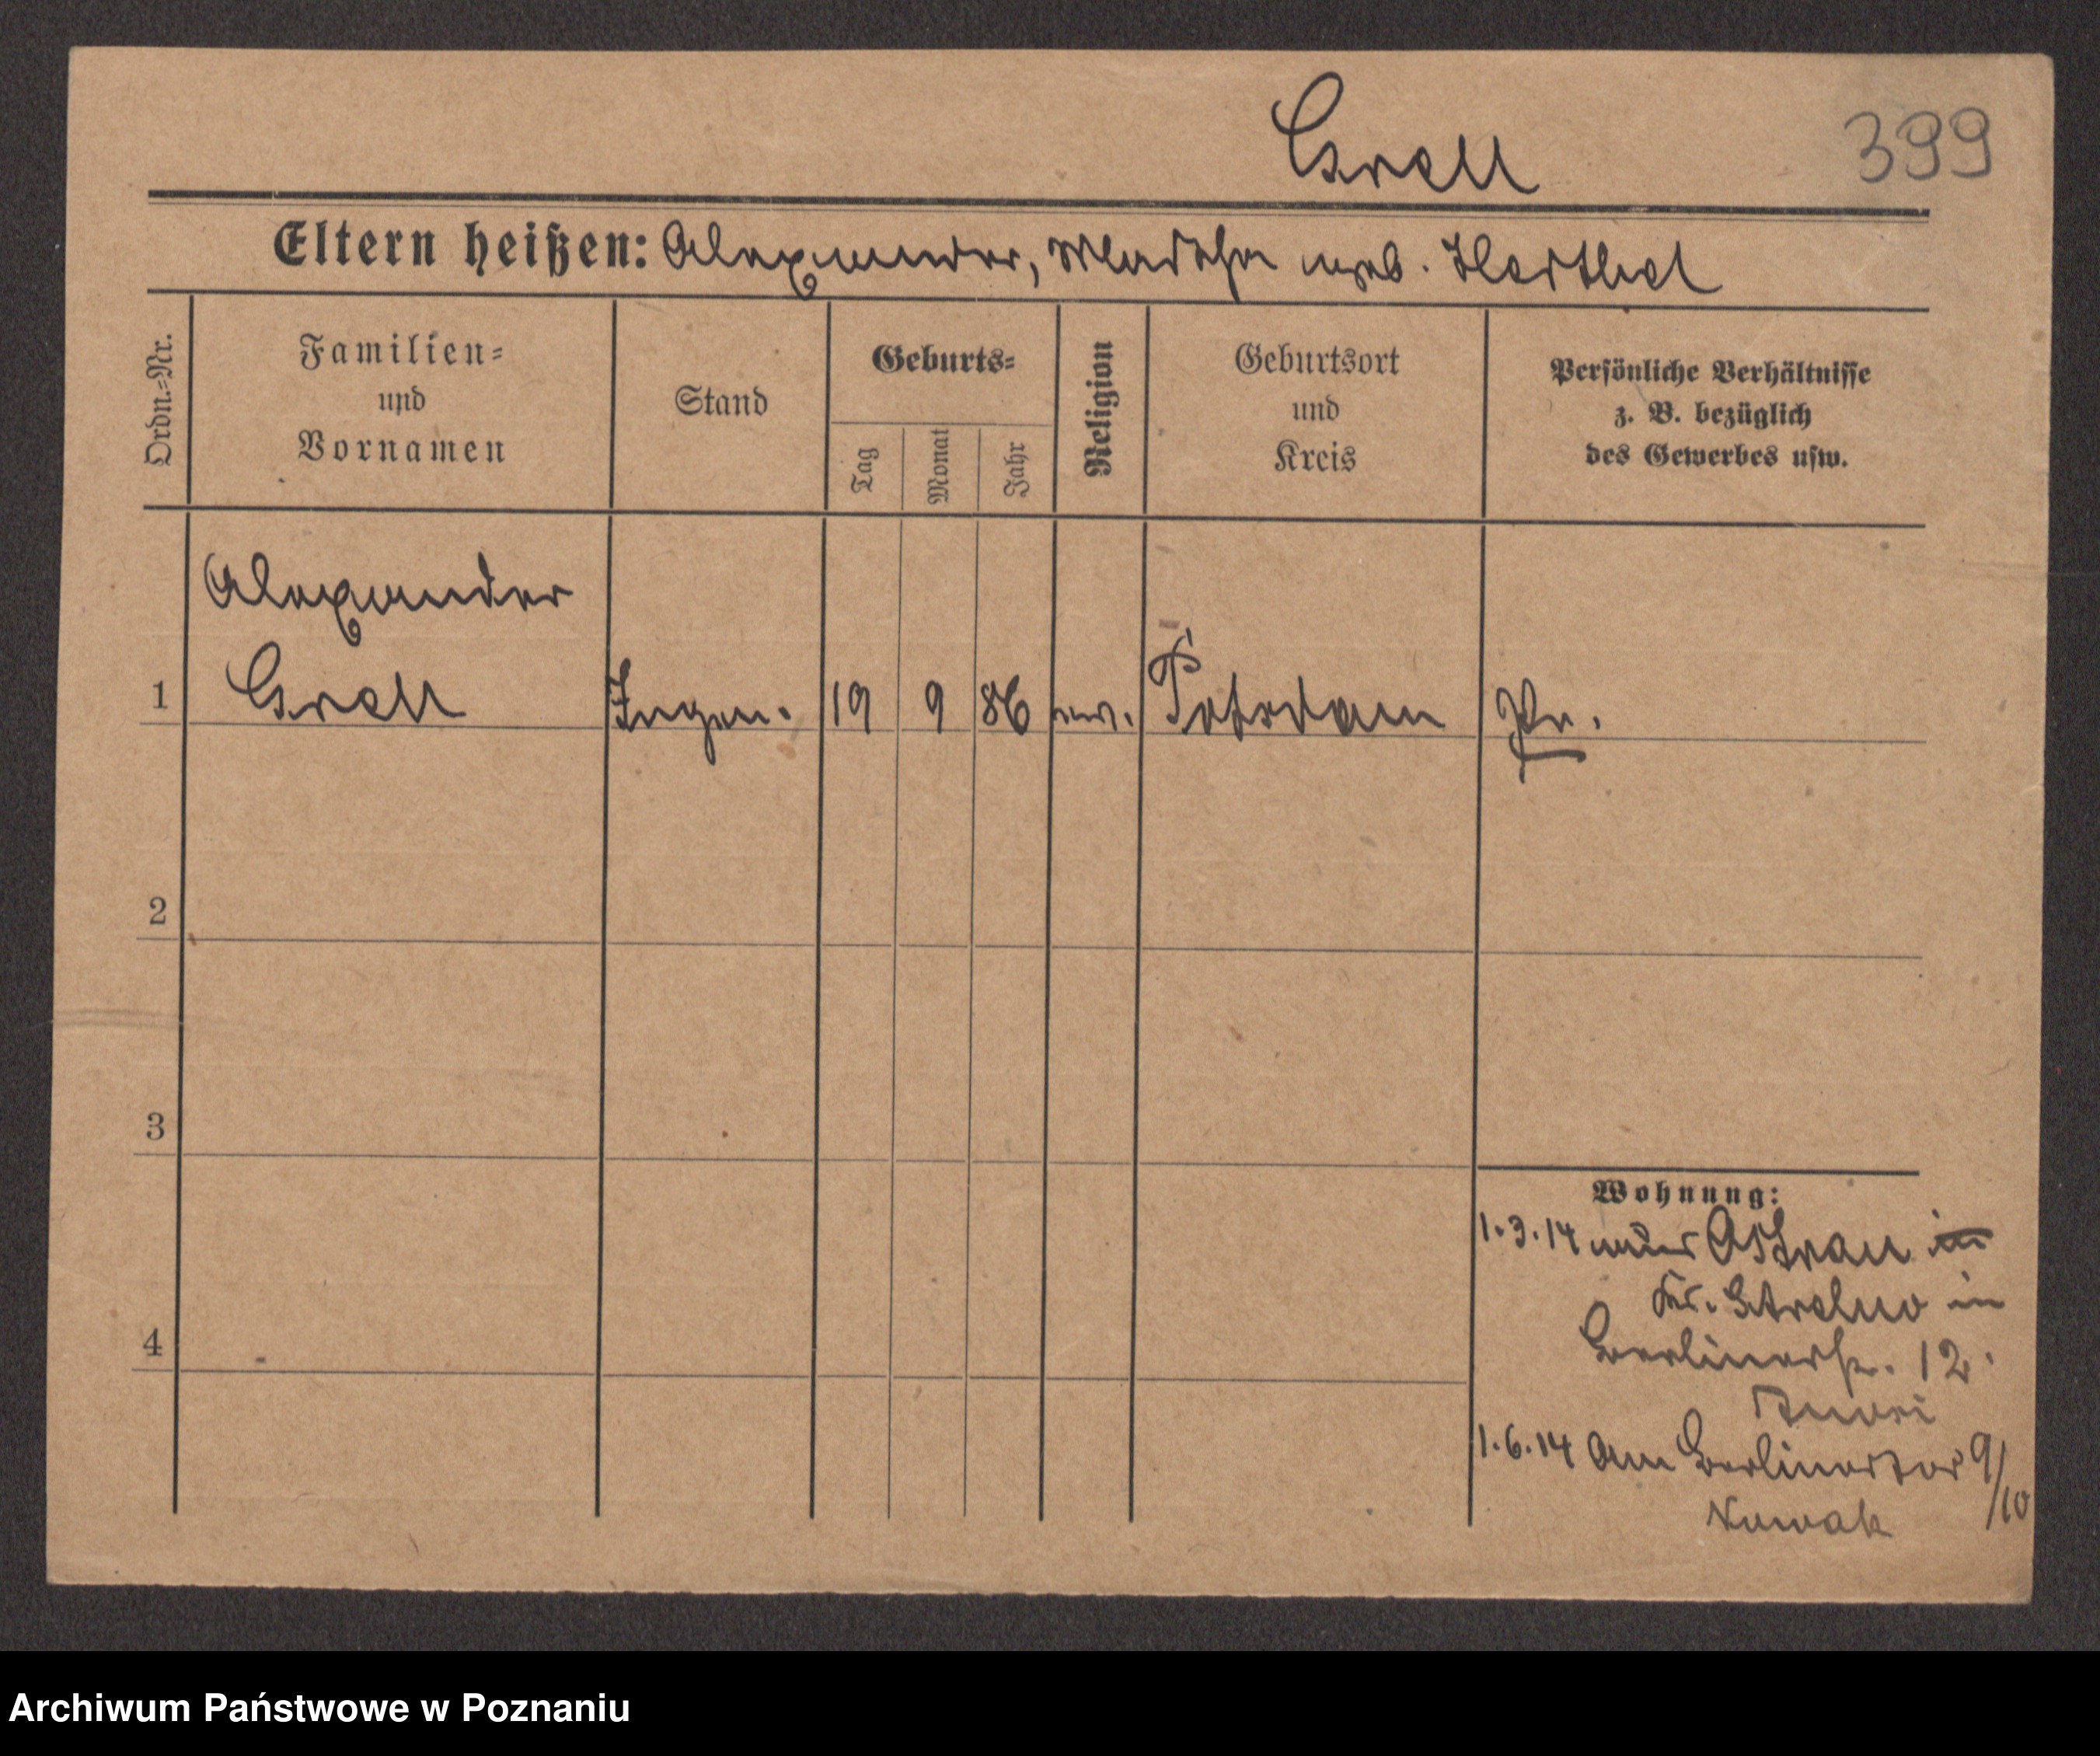 Grell
399
Eltern heißen: Alexander, Martha geb. Herthel
Ordn.=Nr.
Familien=
und
Vornamen
Stand
Geburts=
Tag
Monat
Jahr
Religion
Geburtsort
und
Kreis
Persönliche Verhältnisse
z. B. bezüglich
des Gewerbes usw.
Alexander
1 Grell Ingen. 19 9 86 ev. Potsdam Pr.
2
3
4
Wohnung:
1.3.14 in
Kr. Strelno in
Berlinerstr. 12.
1.6.14 Am Berlinertor 9/10
Nowak
Archiwum Państwowe w Poznaniu